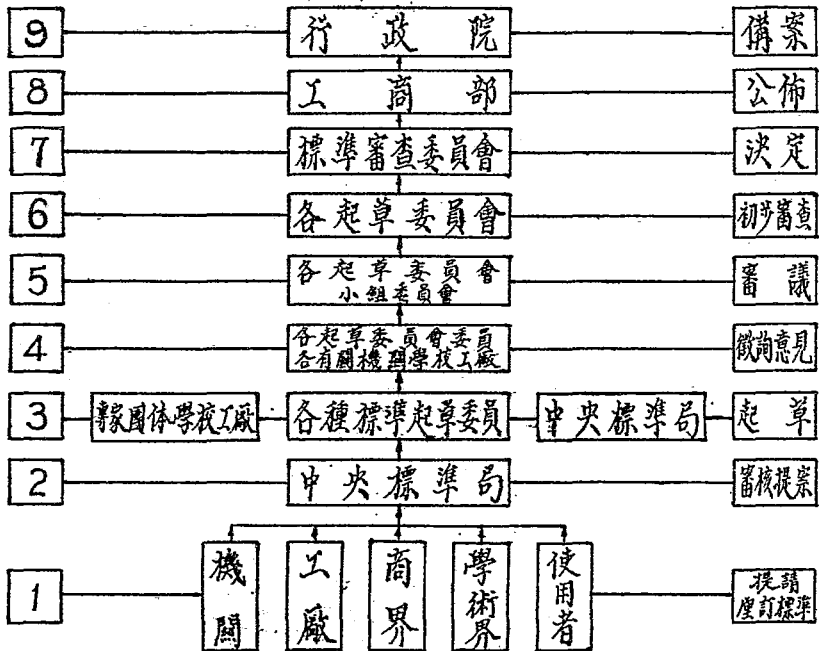 9 行政院 備案
8 工商部 公佈
7 標準審查委員會 決定
6 各起草委員會 初步審查
5 各起草委員會 審議
小組委員會
4 各起草委員會委員 徵詢意見
各有關機關學校工廠
3 專家團体學校工廠 各種標準起草委員 中央標準局 起草
2 中央標準局 審核提案
1 機關 工廠 商界 學術界 使用者 提請
釐訂標準